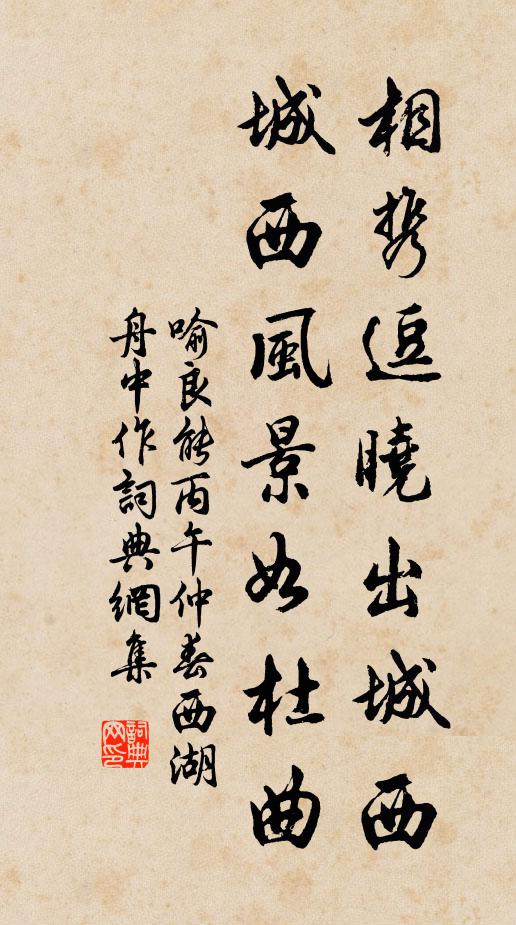 相攜逗曉出城西
城西風景如杜曲
喻良能丙午仲春西湖
舟中作詞典網集
詞典網印